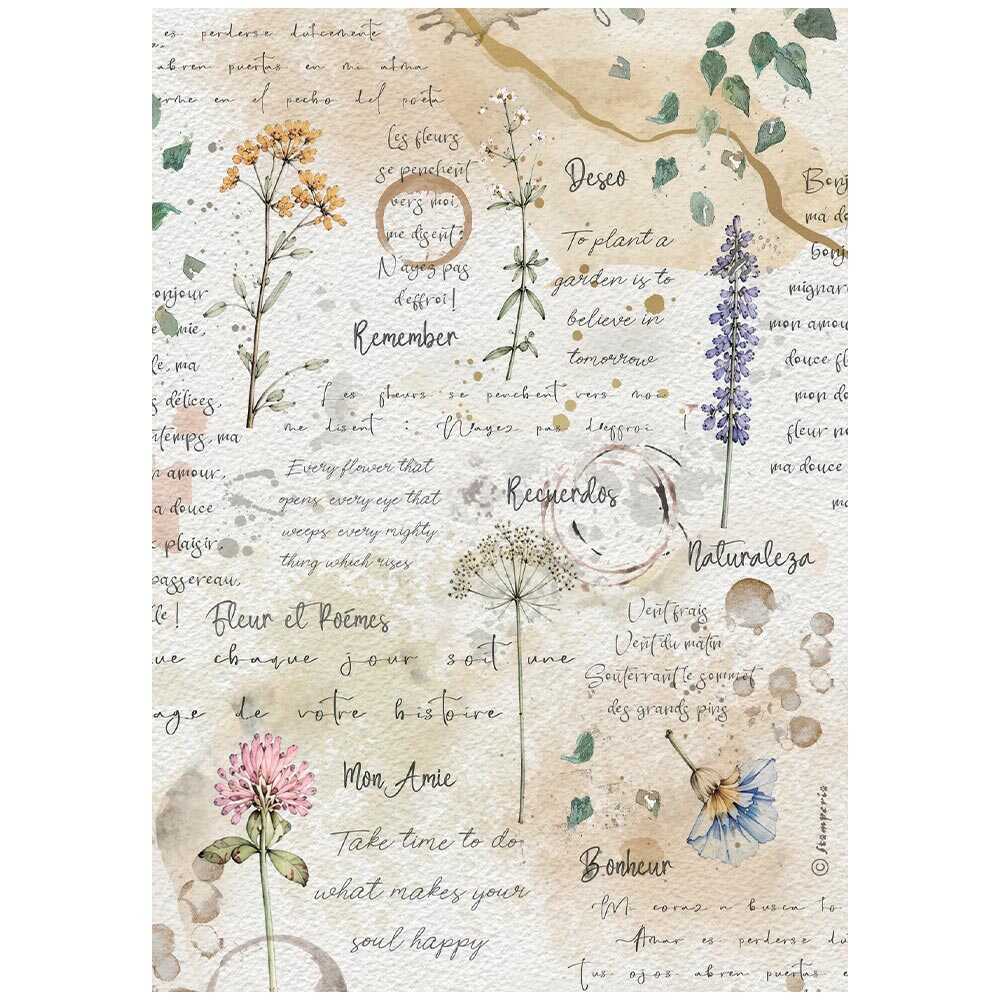 es perderse dulcemente
abren puertas en mi alma
erme en el pecho del poeta
Les fleurs
se penchent
vers moi,
me disent:
N'ayez pas
d'effroi!
Deseo
To plant a
garden is to
believe in
tomorrow
Remember
Bonj
ma do
bonj
mignar
mon amou
douce fl
mon do
fleur n
ma douce
m
onjour
e mie,
le, ma
s délices,
ntemps, ma
n amour,
a douce
plaisir,
passereau,
le!
Les fleurs se penchent vers moi
me disent : N'ayez pas d'effroi !
Every flower that
opens, every eye that
weeps, every mighty
thing which rises
Recuerdos
Naturaleza
Fleur et Poémes
Vent frais
Vent du matin
Souterrant le sommet
des grands pins
ue chaque jour soit une
age de votre histoire
Mon Amie
Take time to do
what makes your
soul happy
Bonheur
© Stamperia
Mi coraz n busca lo
Amar es perderse du
Tus ojos abren puertas e